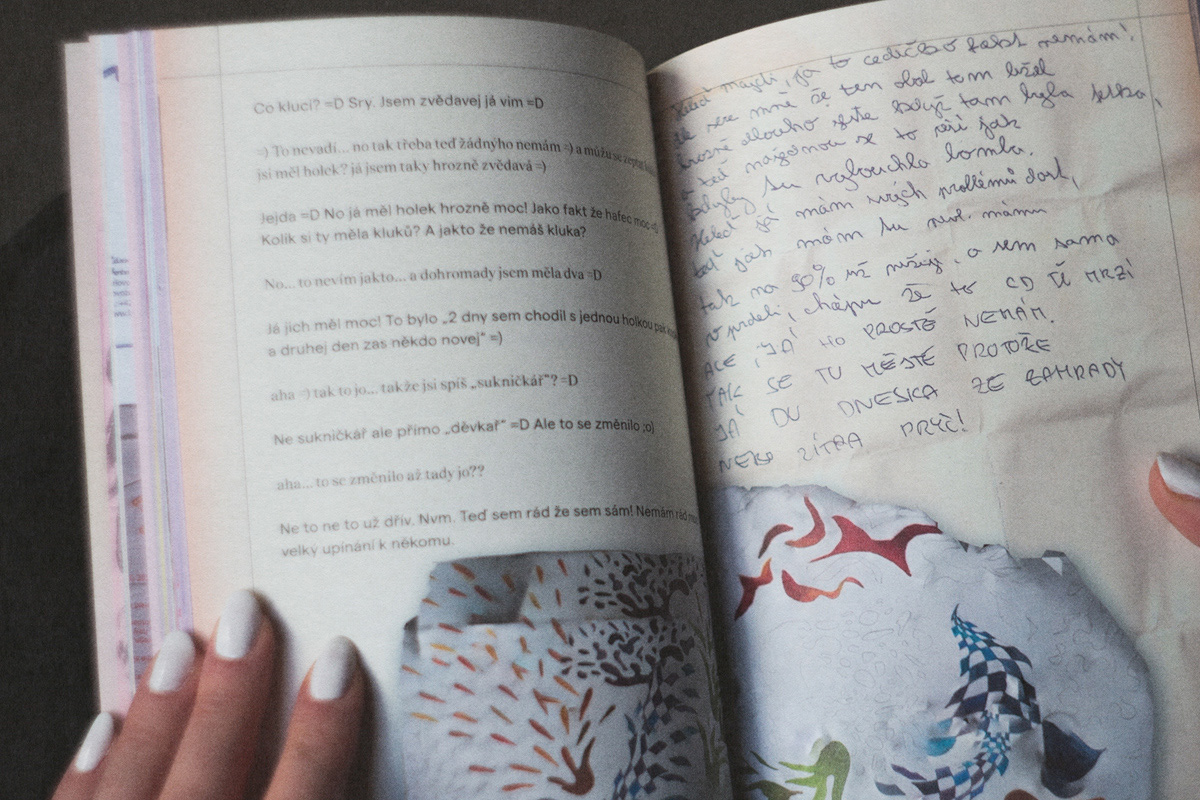 Co kluci? =D Sry. Jsem zvědavej já vim =D
=) To nevadí... no tak třeba teď žádnýho nemám =) a můžu se zeptat
jsi měl holek? já jsem taky hrozně zvědavá =)
Jejda =D No já měl holek hrozně moc! Jako fakt že hafec moc =D
Kolik si ty měla kluků? A jakto že nemáš kluka?
No... to nevím jakto... a dohromady jsem měla dva =D
Já jich měl moc! To bylo „2 dny sem chodil s jednou holkou pak
a druhej den zas někdo novej" =)
aha =) tak to jo... takže jsi spíš „sukničkář"? =D
Ne sukničkář ale přímo „děvkař" =D Ale to se změnilo ;o)
aha... to se změnilo až tady jo??
Ne to ne to už dřív. Nvm. Teď sem rád že sem sám! Nemám rád
velký upínání k někomu.
Hled já to cedíčko fakt nemám!
mně že ten obal tam ležel
hrozně dlouho když tam byla
a teď najednou se to řeší jak
kdyby tu vybouchla bomba.
Hled já mám svých problémů dost,
teď jak mám tu mámu
tak na 90% už a sem sama
v prdeli, chápu že to CD TĚ MRZÍ
ALE JÁ HO PROSTĚ NEMÁM.
TAK SE TU MĚJTE PROTOŽE
JÁ DU DNESKA ZE ZAHRADY
NEBO ZÍTRA PRYČ!